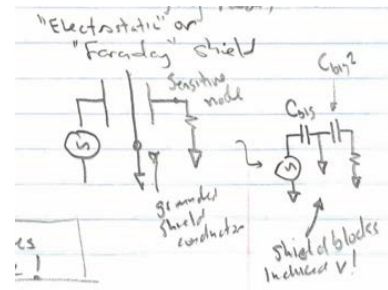 "Electrostatic" or
"Faraday" shield
Sensitive
node
grounded
shield
conductor
C big 2
C big
shield blocks
induced V!
es
!